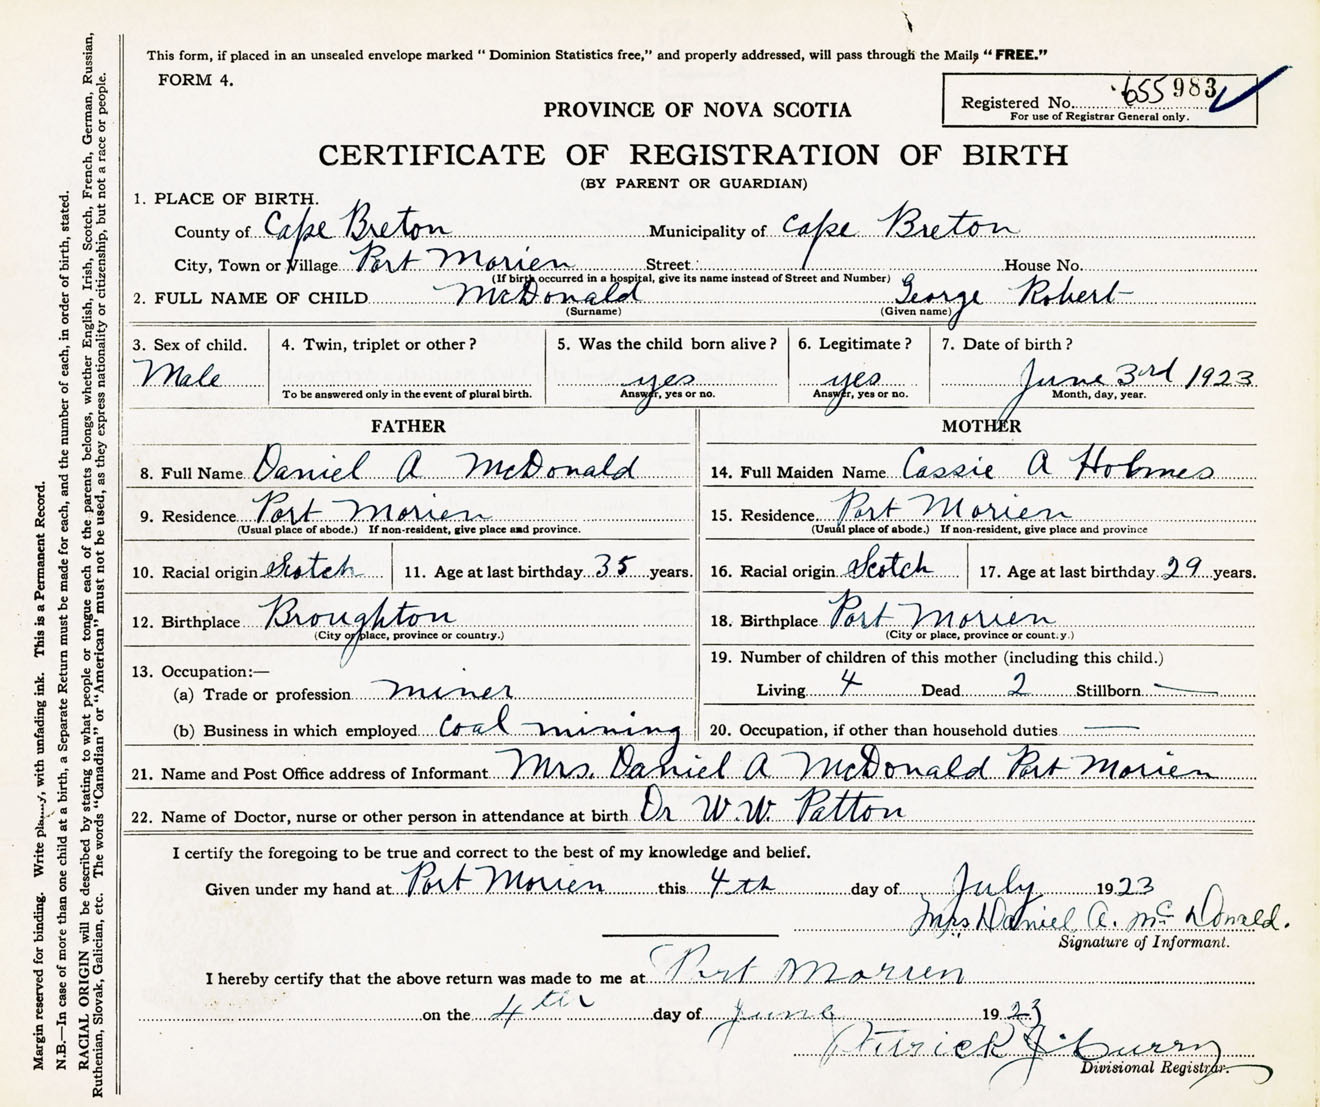 This form, if placed in an unsealed envelope marked "Dominion Statistics free," and properly addressed, will pass through the Mails "FREE."
FORM 4.
Registered No. 655983
For use of Registrar General only.
PROVINCE OF NOVA SCOTIA
CERTIFICATE OF REGISTRATION OF BIRTH
(BY PARENT OR GUARDIAN)
1. PLACE OF BIRTH.
County of Cape Breton Municipality of Cape Breton
City, Town or Village Port Morien Street House No.
(If birth occurred in a hospital, give its name instead of Street and Number)
2. FULL NAME OF CHILD McDonald George Robert
(Surname) (Given name)
3. Sex of child. 4. Twin, triplet or other? 5. Was the child born alive? 6. Legitimate? 7. Date of birth?
Male yes yes June 3rd 1923
To be answered only in the event of plural birth. Answer, yes or no. Answer, yes or no. Month, day, year.
FATHER MOTHER
8. Full Name Daniel A McDonald 14. Full Maiden Name Cassie A Holmes
9. Residence Port Morien 15. Residence Port Morien
(Usual place of abode.) If non-resident, give place and province. (Usual place of abode.) If non-resident, give place and province
10. Racial origin Scotch 11. Age at last birthday 35 years. 16. Racial origin Scotch 17. Age at last birthday 29 years.
12. Birthplace Broughton 18. Birthplace Port Morien
(City or place, province or country.) (City or place, province or country.)
13. Occupation:— 19. Number of children of this mother (including this child.)
(a) Trade or profession miner Living 4 Dead 2 Stillborn —
(b) Business in which employed coal mining 20. Occupation, if other than household duties —
21. Name and Post Office address of Informant Mrs. Daniel A McDonald Port Morien
22. Name of Doctor, nurse or other person in attendance at birth Dr W.W. Patton
I certify the foregoing to be true and correct to the best of my knowledge and belief.
Given under my hand at Port Morien this 4th day of July 1923
Mrs Daniel A. McDonald.
Signature of Informant.
I hereby certify that the above return was made to me at Port Morien
on the 4th day of June 1923
Patrick J Curry
Divisional Registrar.
Margin reserved for binding. Write with unfading ink. This is a Permanent Record.
N.B.—In case of more than one child at a birth, a Separate Return must be made for each, and the number of each, in order of birth, stated.
RACIAL ORIGIN will be described by stating to what people or tongue each of the parents belongs, whether English, Irish, Scotch, French, German, Russian,
Ruthenian, Slovak, Galician, etc. The words "Canadian" or "American" must not be used, as they express nationality or citizenship, but not a race or people.